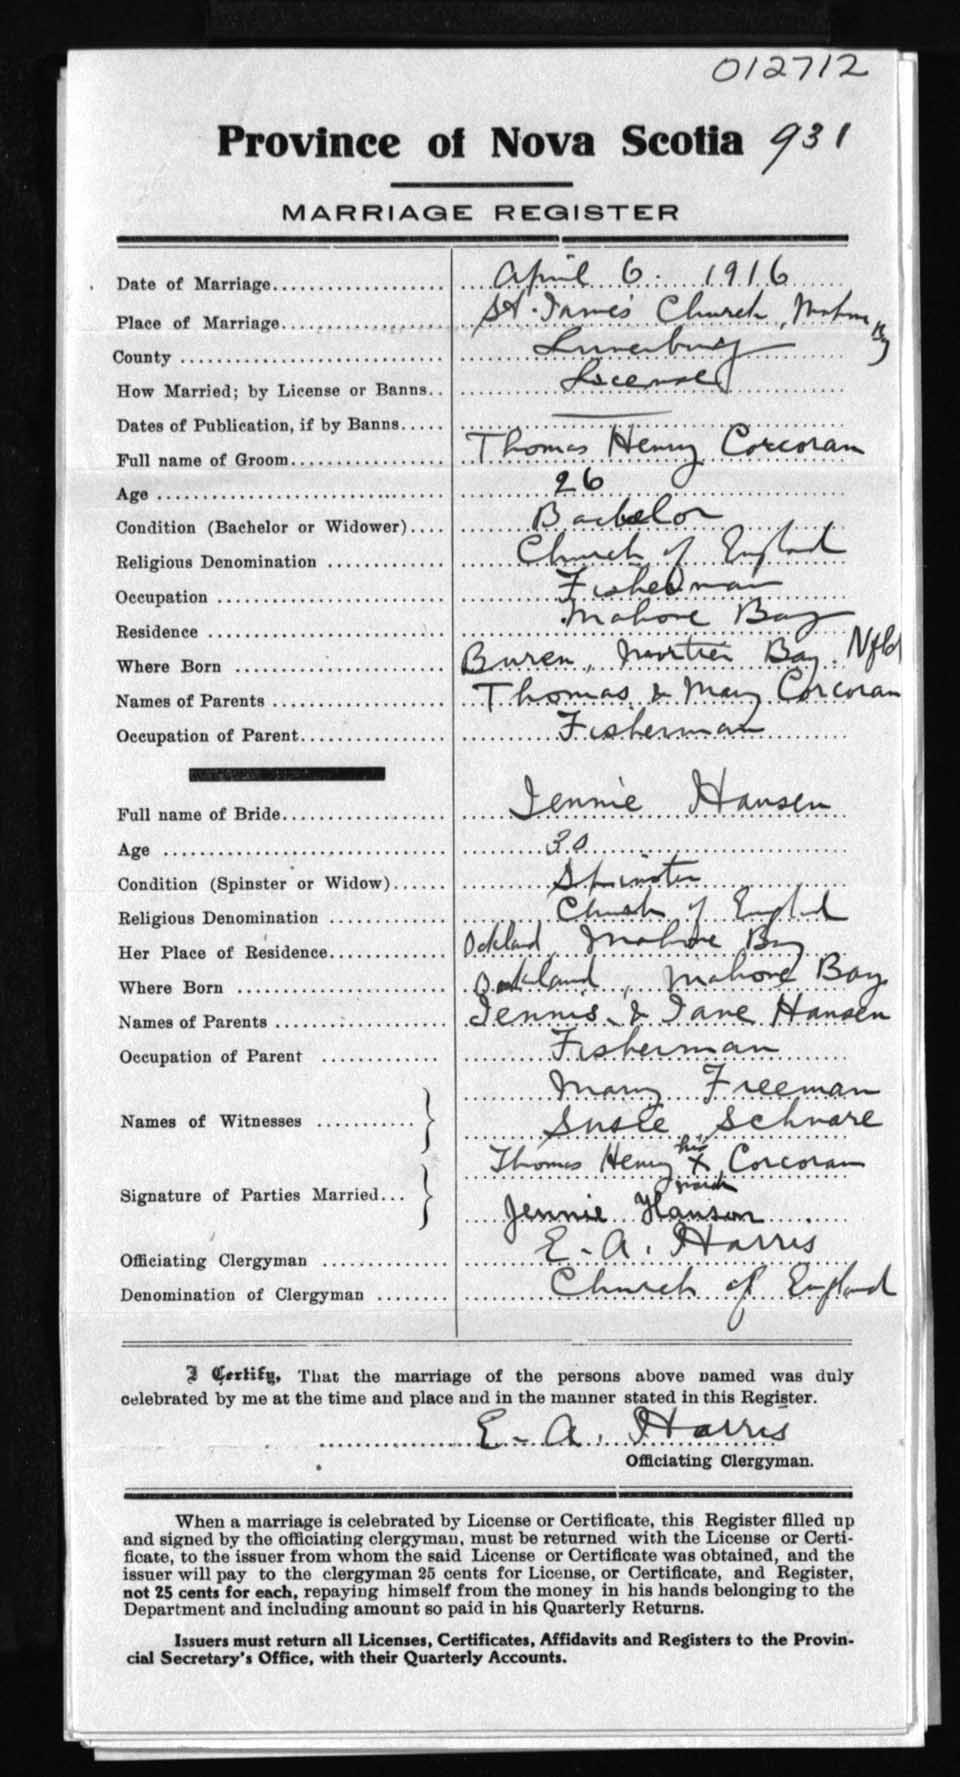 012712
Province of Nova Scotia 931
MARRIAGE REGISTER
Date of Marriage.................... April 6. 1916
Place of Marriage.................... St. James' Church, Mahone Bay
County .................... Lunenburg
How Married; by License or Banns.. License
Dates of Publication, if by Banns..... —
Full name of Groom.................... Thomas Henry Corcoran
Age .................... 26
Condition (Bachelor or Widower).... Bachelor
Religious Denomination ............. Church of England
Occupation .................... Fisherman
Residence .................... Mahone Bay
Where Born .................... Buren, Mortier Bay. Nfld
Names of Parents .................... Thomas & Mary Corcoran
Occupation of Parent................. Fisherman
Full name of Bride................... Jennie Hansen
Age .................... 30
Condition (Spinster or Widow)...... Spinster
Religious Denomination ............. Church of England
Her Place of Residence............. Oakland, Mahone Bay
Where Born .................... Oakland, Mahone Bay
Names of Parents .................... & Jane Hansen
Occupation of Parent ............. Fisherman
Mary Freeman
Names of Witnesses ........... Susie Schnare
Thomas Henry his X mark Corcoran
Signature of Parties Married... Jennie Hanson
Officiating Clergyman ............. E. A. Harris
Denomination of Clergyman ........ Church of England
I Certify, That the marriage of the persons above named was duly
celebrated by me at the time and place and in the manner stated in this Register.
E. A. Harris
Officiating Clergyman.
When a marriage is celebrated by License or Certificate, this Register filled up
and signed by the officiating clergyman, must be returned with the License or Certi-
ficate, to the issuer from whom the said License or Certificate was obtained, and the
issuer will pay to the clergyman 25 cents for License, or Certificate, and Register,
not 25 cents for each, repaying himself from the money in his hands belonging to the
Department and including amount so paid in his Quarterly Returns.
Issuers must return all Licenses, Certificates, Affidavits and Registers to the Provin-
cial Secretary's Office, with their Quarterly Accounts.